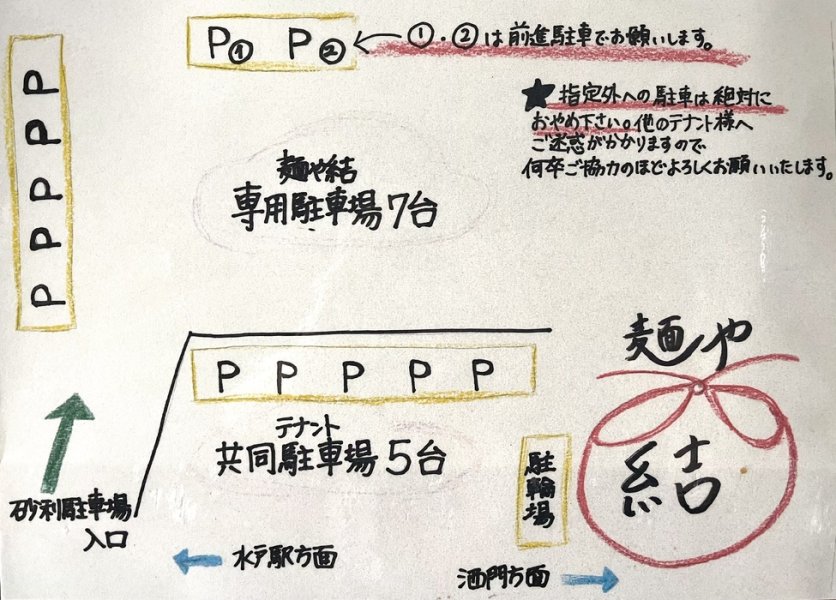 P① P②
①・②は前進駐車でお願いします。
★指定外への駐車は絶対に
おやめ下さい。他のテナント様へ
ご迷惑がかかりますので
何卒ご協力のほどよろしくお願いいたします。
P
P
P
P
P
麺や結
専用駐車場7台
P P P P P
テナント
共同駐車場5台
麺や
結
駐輪場
砂利駐車場
入口
水戸駅方面
酒門方面